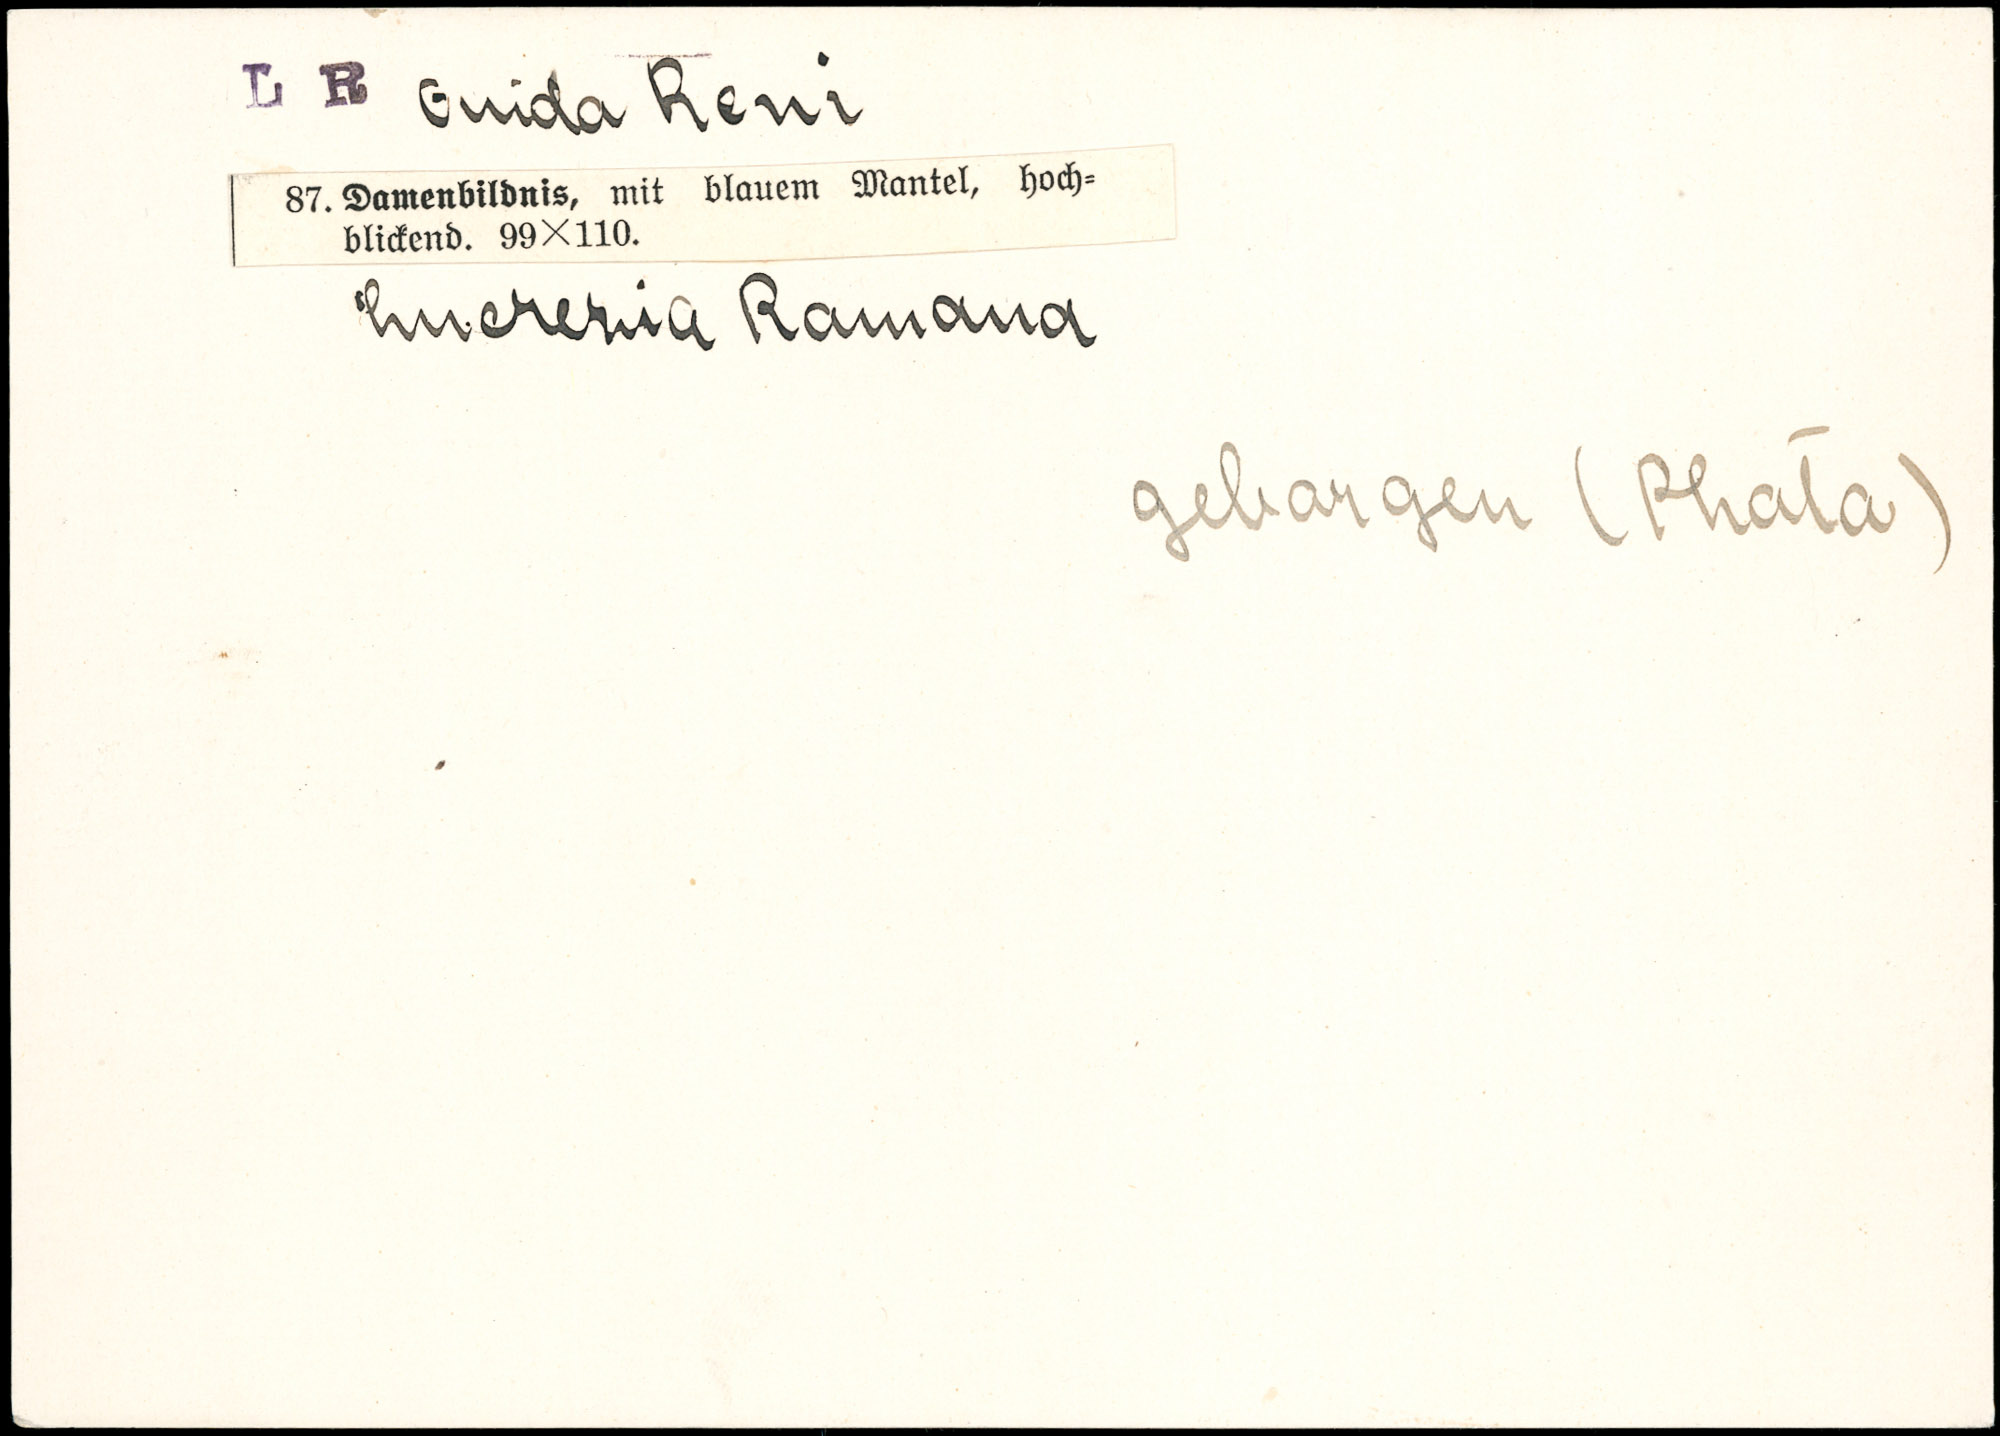 L R Guido Reni
87. Damenbildnis, mit blauem Mantel, hoch=
blickend. 99×110.
Lucrezia Romana
geborgen (Photo)